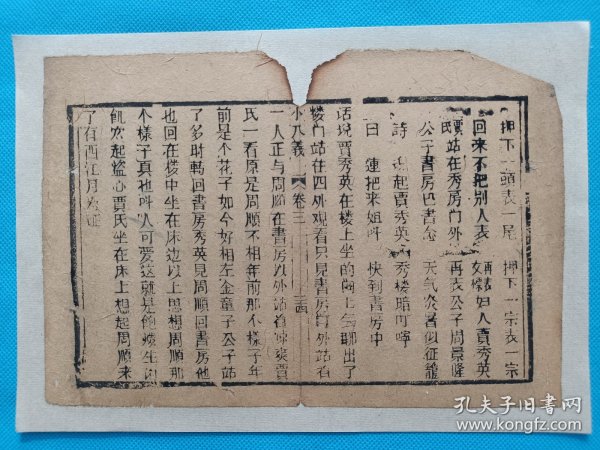 押下一頭表一尾　押下一宗表一宗
回來不把別人表　婦人賈秀英
站在秀房門外　再表公子周景隆
公子書房巴書念　天气炎暑似征籠
詩　起賈秀英　秀樓暗叮嚀
曰　連把來姐叫　快到書房中
話說賈秀英在楼上坐的悶上每聊出了
楼門站在四外观看只見書房門外站着
小八義　卷三
一人正与周順在書房以外站着凉爽賈
氏一看原是周順不相年前那个樣子年
前是个花子如今好相左金童子公子站
了多时轉回書房秀英見周順回書房他
也回在楼中坐在床边以上思想周順那
个樣子真也叫人可爱這就是飽煖生
飢欠起盗心賈氏坐在床上想起周順來
了有西江月为证
孔夫子旧书网
www.kongfz.com